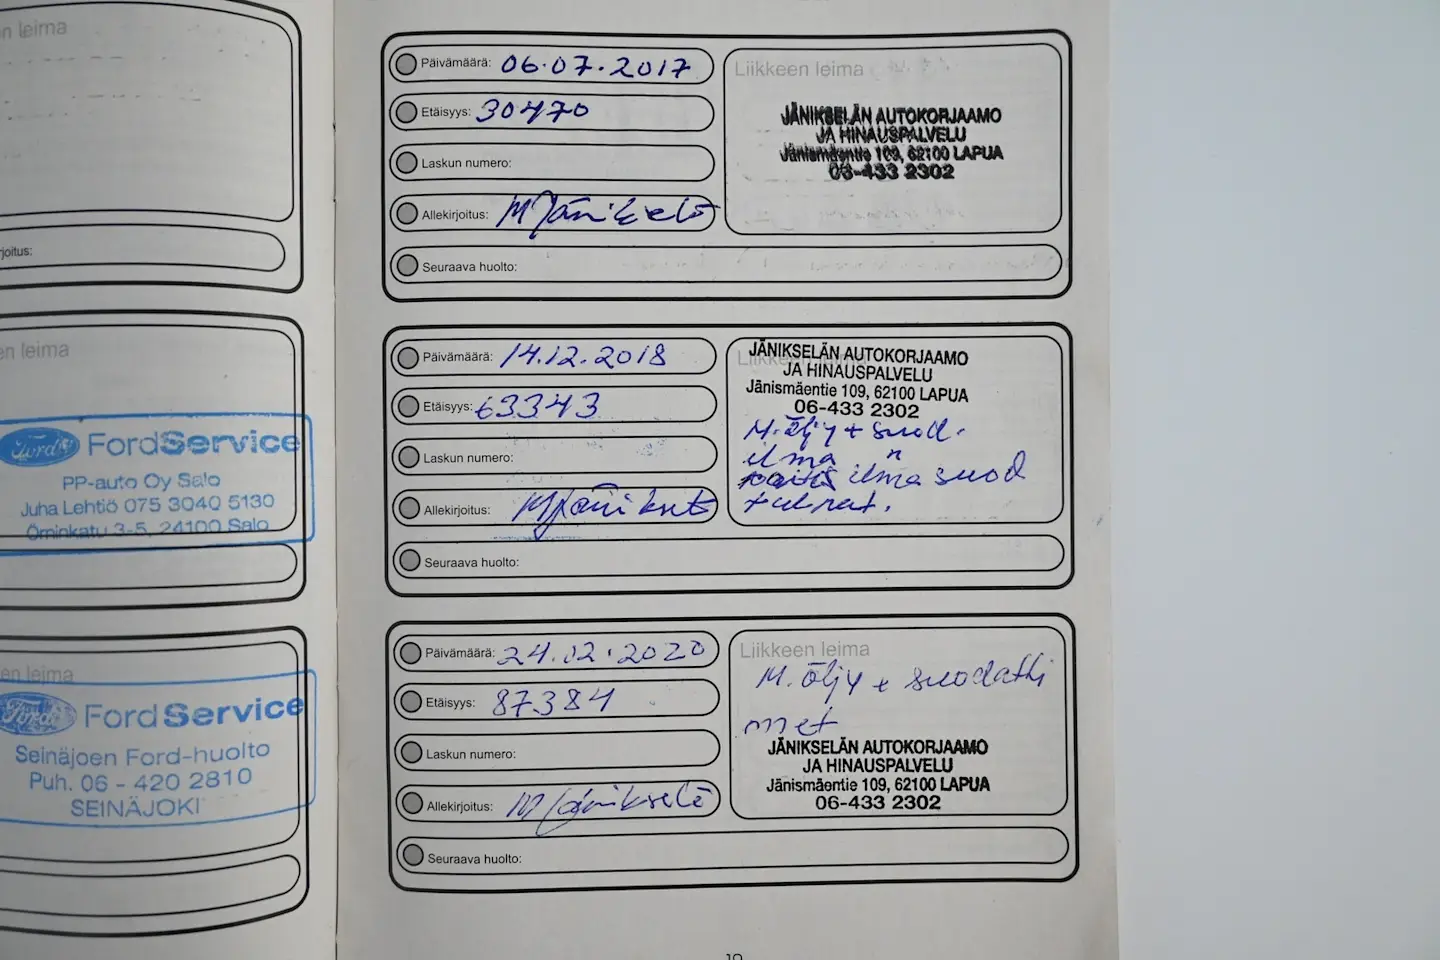 en leima
rjoitus:
en leima
Ford FordService
PP-auto Oy Salo
Juha Lehtiö 075 3040 5130
Örninkatu 3-5, 24100 Salo
en leima
Ford FordService
Seinäjoen Ford-huolto
Puh. 06 - 420 2810
SEINÄJOKI
Päivämäärä: 06.07.2017
Etäisyys: 30470
Laskun numero:
Allekirjoitus: M Jänikselä
Seuraava huolto:
Liikkeen leima
JÄNIKSELÄN AUTOKORJAAMO
JA HINAUSPALVELU
Jänismäentie 109, 62100 LAPUA
06-433 2302
Päivämäärä: 14.12.2018
Etäisyys: 63343
Laskun numero:
Allekirjoitus:
Seuraava huolto:
Liikkeen leima
JÄNIKSELÄN AUTOKORJAAMO
JA HINAUSPALVELU
Jänismäentie 109, 62100 LAPUA
06-433 2302
M. öljy + suod.
ilma
ilma suod
Päivämäärä: 24.02.2020
Etäisyys: 87384
Laskun numero:
Allekirjoitus: M Jänikselä
Seuraava huolto:
Liikkeen leima
M. öljy + suodatti
met
JÄNIKSELÄN AUTOKORJAAMO
JA HINAUSPALVELU
Jänismäentie 109, 62100 LAPUA
06-433 2302